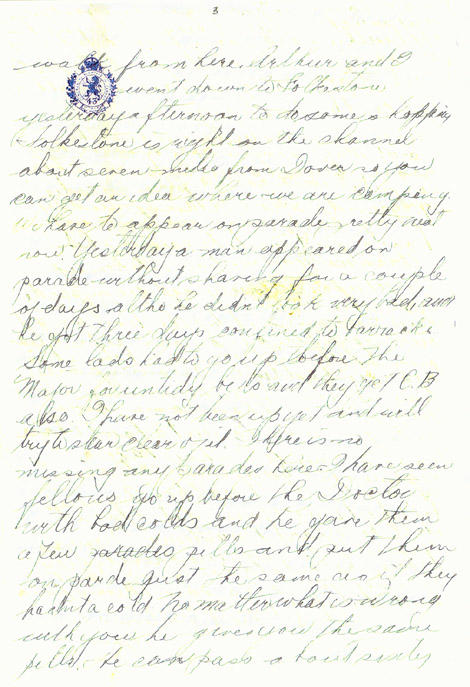 3
43
walk from here. Arthur and I
went down to Folkstone
yesterday afternoon to do some shopping
Folkestone is right on the channel
about seven miles from Dover so you
can get an idea where we are camping
We have to appear on parade pretty neat
now. Yesterday a man appeared on
parade without shaving for a couple
of days altho he didn't look very bad, and
he got three days confined to barracks
Some lads had to go up before the
Major for untidy and they got C.B
also. I have not been up yet and will
try to stear clear of it. There is no
missing any parades here. I have seen
fellows go up before the Doctor
with bad colds and he gave them
a few pills and put them
on parde just the same as if they
hadnt a cold No matter what is wrong
with you he gives you the same
pills. he can pass about sixty